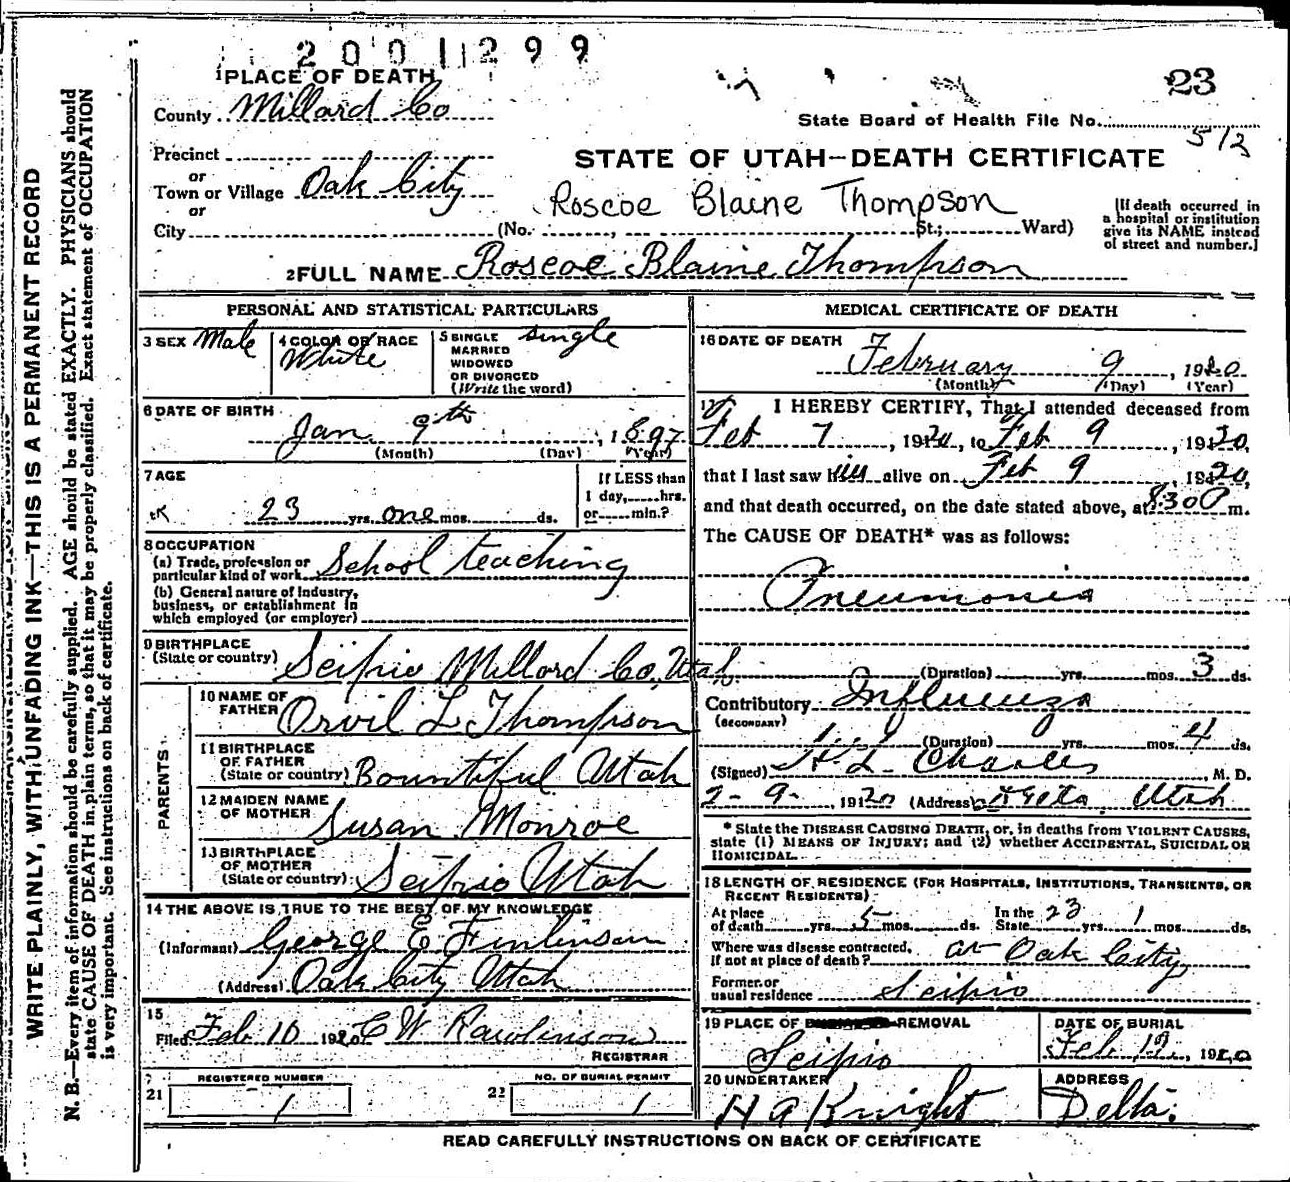 2001299
23
1 PLACE OF DEATH
County Millard Co
State Board of Health File No. 512
Precinct
or
Town or Village Oak City
or
City (No. , St.; Ward)
STATE OF UTAH—DEATH CERTIFICATE
Roscoe Blaine Thompson
[If death occurred in
a hospital or institution
give its NAME instead
of street and number.]
2 FULL NAME Roscoe Blaine Thompson
PERSONAL AND STATISTICAL PARTICULARS
3 SEX Male
4 COLOR OR RACE White
5 SINGLE
MARRIED
WIDOWED
OR DIVORCED
(Write the word) single
6 DATE OF BIRTH
Jan 9th, 1897
(Month) (Day) (Year)
7 AGE
23 yrs. one mos. ds.
If LESS than
1 day, hrs.
or min.?
8 OCCUPATION
(a) Trade, profession or
particular kind of work School teaching
(b) General nature of Industry,
business, or establishment in
which employed (or employer)
9 BIRTHPLACE
(State or country) Scipio Millard Co, Utah
PARENTS
10 NAME OF
FATHER Orvil L Thompson
11 BIRTHPLACE
OF FATHER
(State or country) Bountiful Utah
12 MAIDEN NAME
OF MOTHER Susan Monroe
13 BIRTHPLACE
OF MOTHER
(State or country) Scipio Utah
14 THE ABOVE IS TRUE TO THE BEST OF MY KNOWLEDGE
(Informant) George E Finlinson
(Address) Oak City Utah
15
Filed Feb 10 1920 C W Rawlinson
REGISTRAR
REGISTERED NUMBER
21 1
NO. OF BURIAL PERMIT
22 1
MEDICAL CERTIFICATE OF DEATH
16 DATE OF DEATH
February 9, 1920
(Month) (Day) (Year)
17 I HEREBY CERTIFY, That I attended deceased from
Feb 7, 1920, to Feb 9 1920,
that I last saw him alive on Feb 9, 1920,
and that death occurred, on the date stated above, at 8:30 P m.
The CAUSE OF DEATH* was as follows:
Pneumonia
(Duration) yrs. mos. 3 ds.
Contributory Influenza
(SECONDARY)
(Duration) yrs. mos. 4 ds.
(Signed) H. L. Charles, M. D.
2-9-, 1920 (Address) Delta, Utah
* State the DISEASE CAUSING DEATH, or, in deaths from VIOLENT CAUSES,
state (1) MEANS OF INJURY; and (2) whether ACCIDENTAL, SUICIDAL OR
HOMICIDAL.
18 LENGTH OF RESIDENCE (FOR HOSPITALS, INSTITUTIONS, TRANSIENTS, OR
RECENT RESIDENTS)
At place
of death yrs. 5 mos. ds.
In the
State 23 yrs. 1 mos. ds.
Where was disease contracted,
if not at place of death? at Oak City
Former or
usual residence Scipio
19 PLACE OF REMOVAL
Scipio
DATE OF BURIAL
Feb, 1920
20 UNDERTAKER
H A Knight
ADDRESS
Delta.
READ CAREFULLY INSTRUCTIONS ON BACK OF CERTIFICATE
WRITE PLAINLY, WITH UNFADING INK—THIS IS A PERMANENT RECORD
N. B.—Every item of information should be carefully supplied. AGE should be stated EXACTLY. PHYSICIANS should
state CAUSE OF DEATH in plain terms, so that it may be properly classified. Exact statement of OCCUPATION
is very important. See instructions on back of certificate.